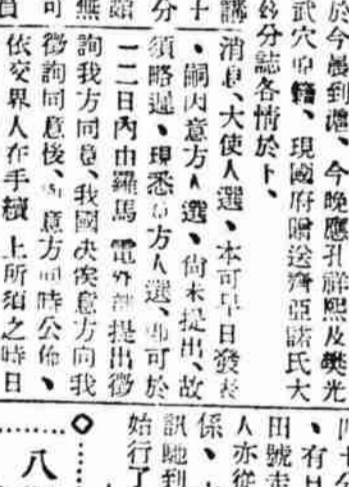 於今晨到滬、今晚應孔祥熙及樊光
武穴 籍、現國府贈送齊亞諾氏大
分誌各情於下、
消息、大使人選、本可早日發表
、嗣因意方人選、尚未提出、故
須略遲、現悉 方人選、即可於
一二日內由羅馬電外部提出徵
詢我方同意、我國決俟意方向我
徵詢同意後、 意方同時公佈、
依交界人在手續上所須之時日
講
十
分
館
無
可
四十分
、有日
田號走
人亦從
係、
訊馳到
始行了
◇
八